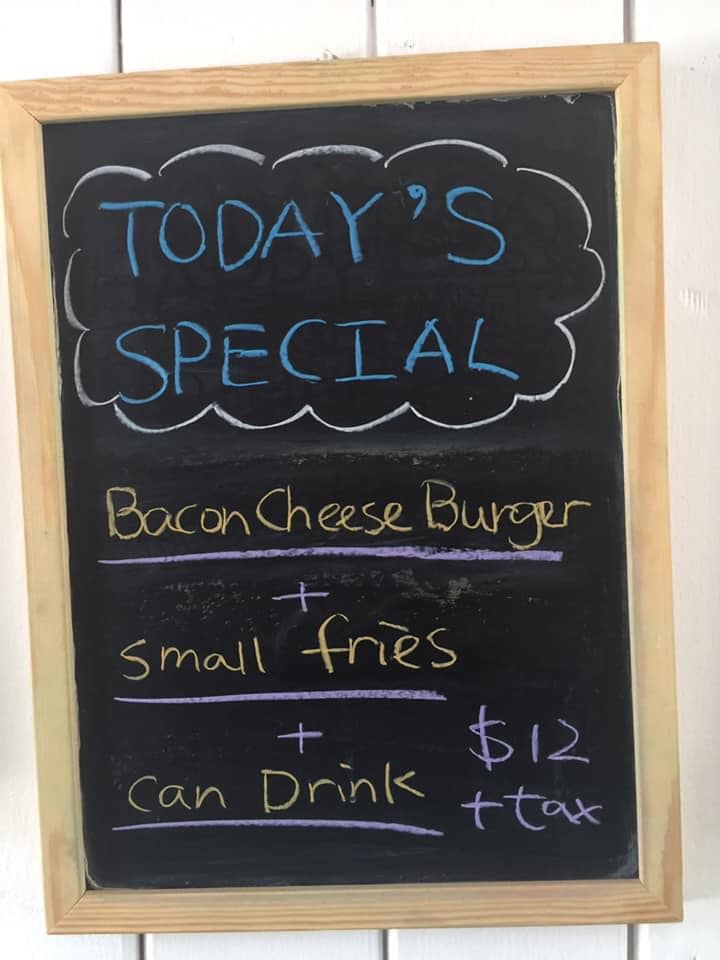 TODAY'S
SPECIAL
Bacon Cheese Burger
+
small fries
+
can Drink
$12
+ tax